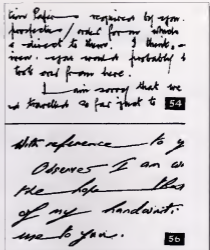 required by you.
prospectus / order form which
direct to them. I think,
you would probably
took out from here.
I am sorry that we
travelled as far just to 54
With reference to y
Observer I am
the hope that
of my handwriti
use to you.
56